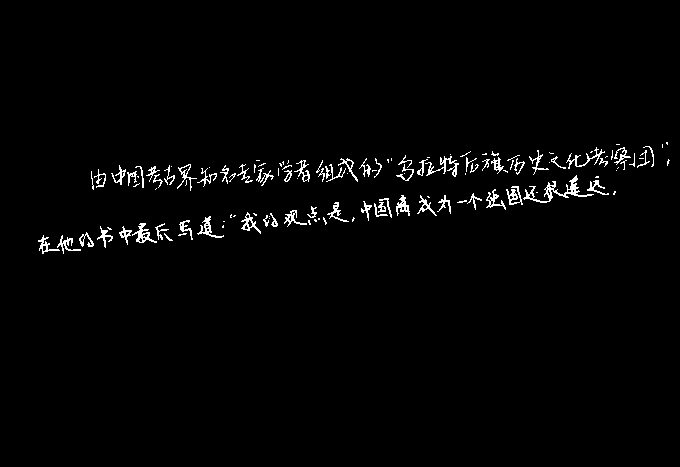 由中国考古界知名专家学者组成的“乌拉特后旗历史文化考察团”，
在他的书中最后写道：“我的观点是，中国离成为一个强国还很遥远．